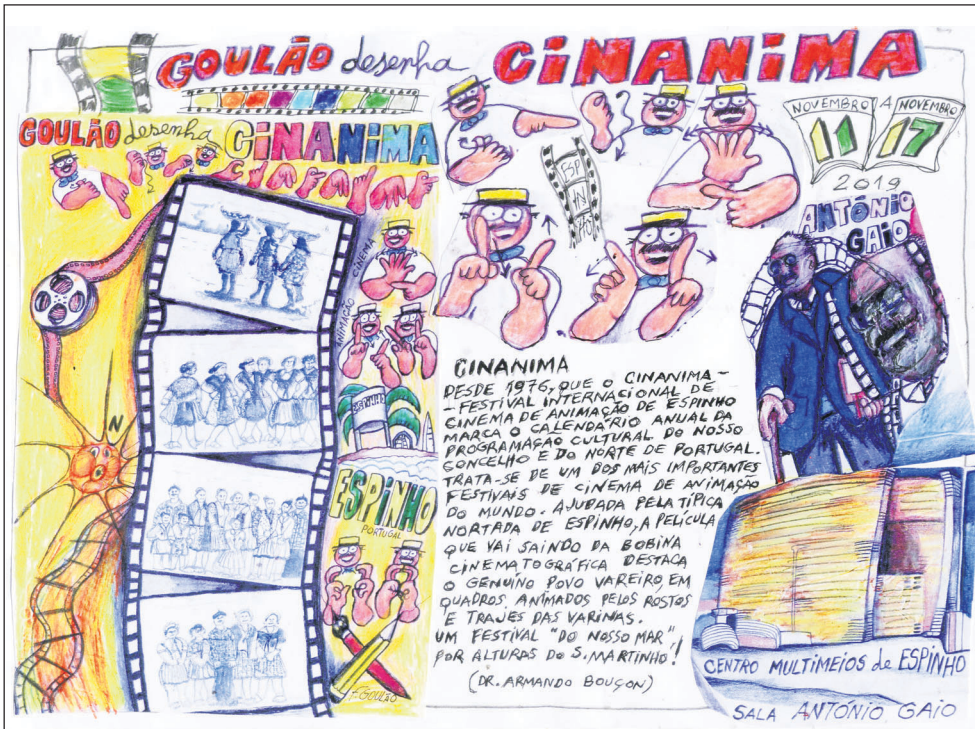 GOULÃO desenha
CINANIMA
GOULÃO desenha
CINANIMA
CINEMA
ANIMAÇÃO
ESPINHO
ESPINHO
PORTUGAL
N
F. GOULÃO
ESP
NOVEMBRO A NOVEMBRO
11 17
2019
ANTÓNIO
GAIO
CINANIMA
DESDE 1976, QUE O CINANIMA -
- FESTIVAL INTERNACIONAL DE
CINEMA DE ANIMAÇÃO DE ESPINHO
MARCA O CALENDÁRIO ANUAL DA
PROGRAMAÇÃO CULTURAL DO NOSSO
CONCELHO E DO NORTE DE PORTUGAL.
TRATA-SE DE UM DOS MAIS IMPORTANTES
FESTIVAIS DE CINEMA DE ANIMAÇÃO
DO MUNDO. AJUDADA PELA TÍPICA
NORTADA DE ESPINHO, A PELÍCULA
QUE VAI SAINDO DA BOBINA
CINEMATOGRÁFICA DESTACA
O GENUÍNO POVO VAREIRO EM
QUADROS ANIMADOS PELOS ROSTOS
E TRAJES DAS VARINAS.
UM FESTIVAL "DO NOSSO MAR"
POR ALTURAS DO S. MARTINHO!
(DR. ARMANDO BOUÇON)
CENTRO MULTIMEIOS de ESPINHO
SALA ANTÓNIO GAIO